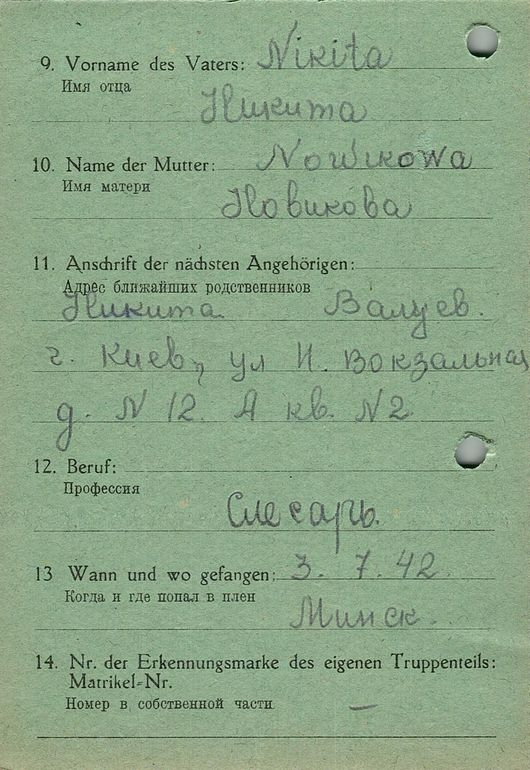 9. Vorname des Vaters: Nikita
Имя отца
Никита
10. Name der Mutter: Nowikowa
Имя матери
Новикова
11. Anschrift der nächsten Angehörigen:
Адрес ближайших родственников
Никита Валуев.
г. Киев, ул Н. Вокзальная
д. N 12. А кв. N 2
12. Beruf:
Профессия
Слесарь.
13 Wann und wo gefangen: 3. 7. 42.
Когда и где попал в плен
Минск.
14. Nr. der Erkennungsmarke des eigenen Truppenteils:
Matrikel-Nr.
Номер в собственной части
—